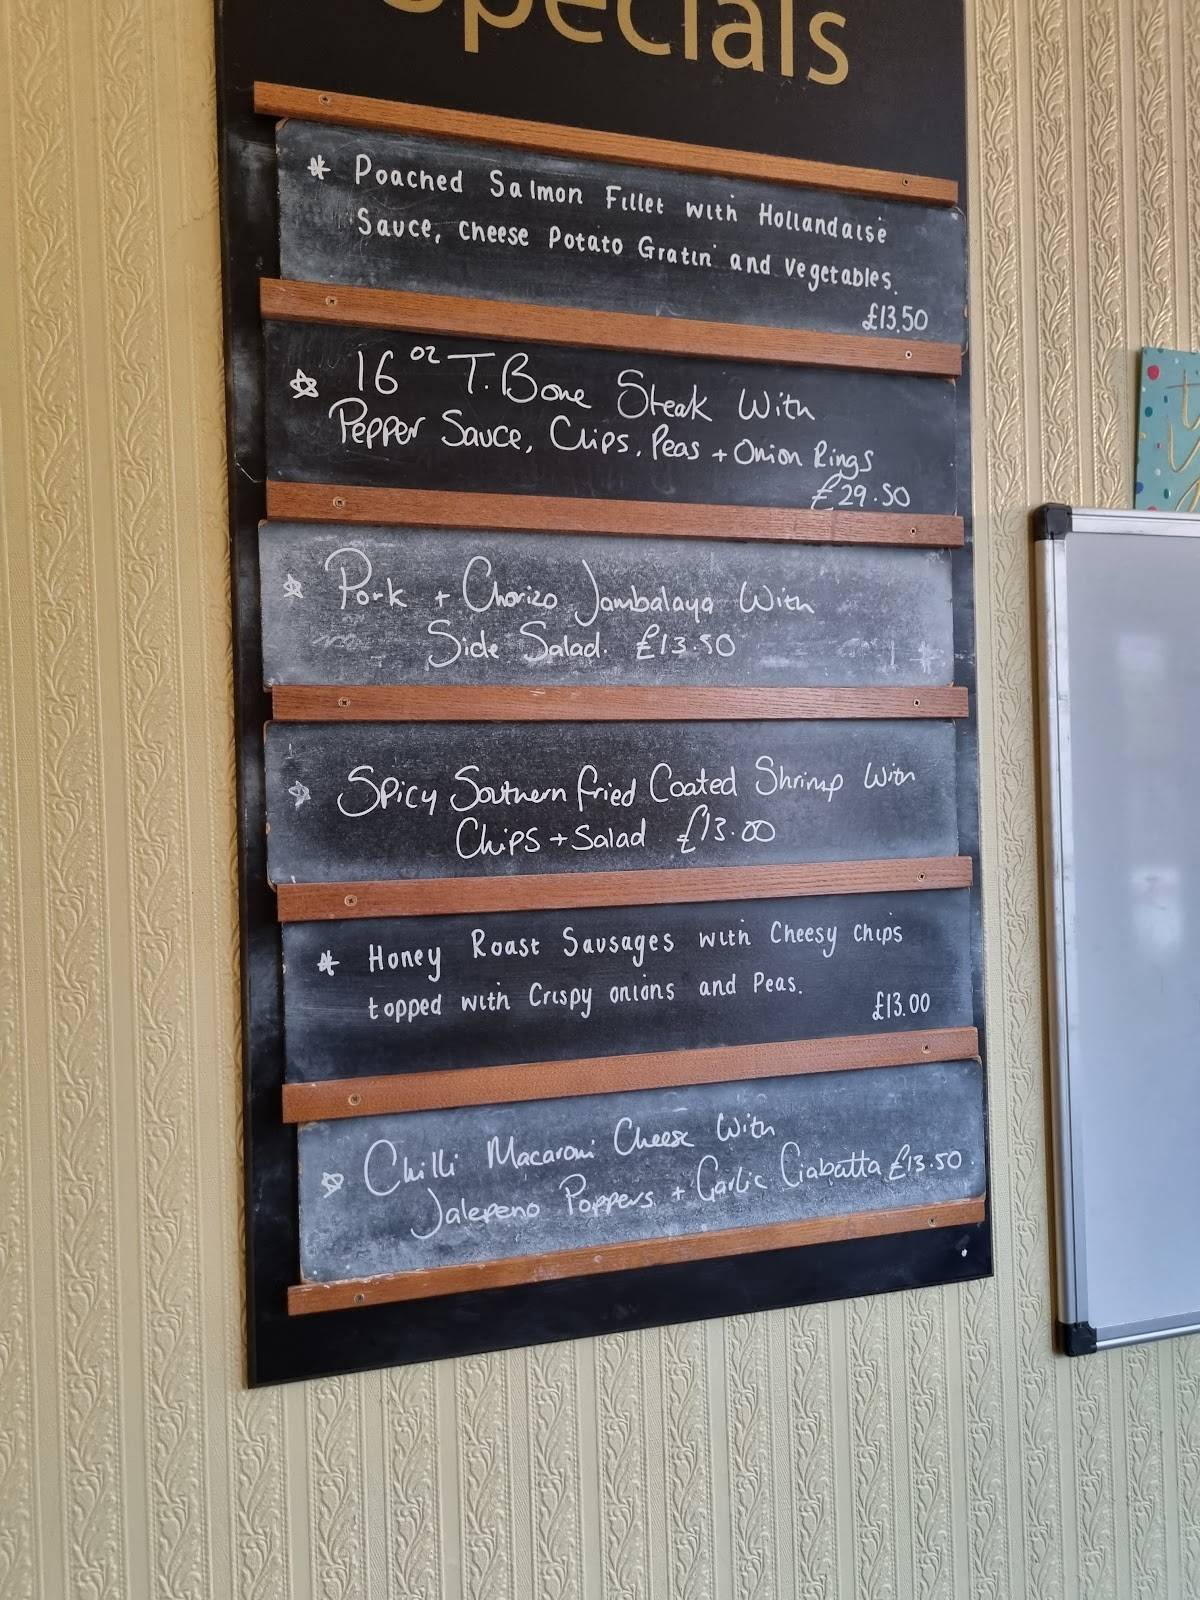 Specials
* Poached Salmon Fillet with Hollandaise
Sauce, cheese Potato Gratin and vegetables.
£13.50
☆ 16oz T. Bone Steak With
Pepper Sauce, Chips, Peas + Onion Rings
£29.50
☆ Pork + Chorizo Jambalaya With
Side Salad. £13.50
☆ Spicy Southern fried Coated Shrimp With
Chips + Salad £13.00
* Honey Roast Sausages with Cheesy chips
topped with Crispy onions and Peas.
£13.00
☆ Chilli Macaroni Cheese With
Jalepeno Poppers + Garlic Ciabatta £13.50.